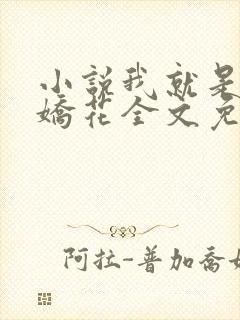 小说我就是
娇花全文免
阿拉-普加乔娃